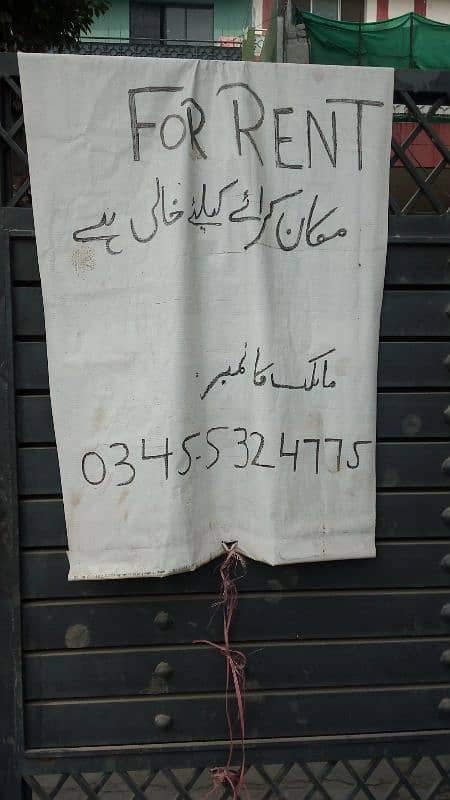 FOR RENT
مکان کرائے کیلئے خالی ہے
مالک کا نمبر:
0345-5324775